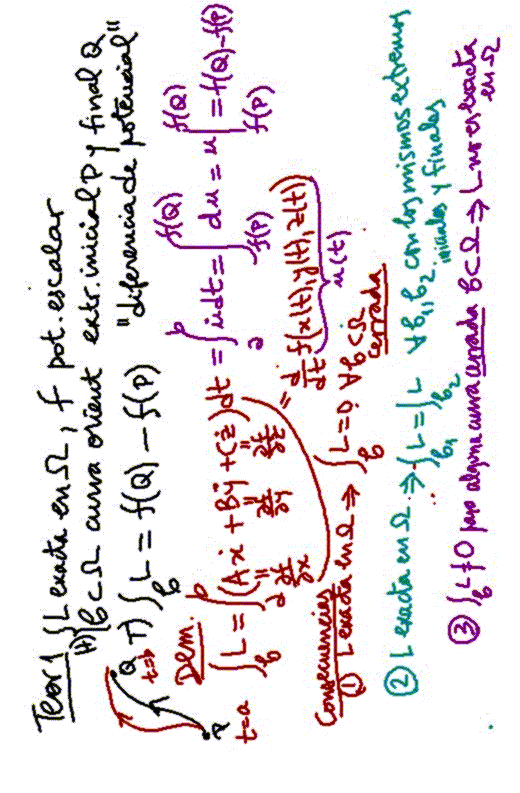 Teor 1 { L exacta en Ω, f pot. escalar
(H) { ℓ ⊂ Ω curva orient extr. inicial P y final Q
Q T) ∫_ℓ L = f(Q) − f(P) "diferencia de potencial"
t=b
P
t=a
Dem.
∫_ℓ L = ∫_a^b (Aẋ + Bẏ + Cż) dt = ∫_a^b u̇ dt = ∫_{f(P)}^{f(Q)} du = u |_{f(P)}^{f(Q)} = f(Q) − f(P)
= ∂f/∂x = ∂f/∂y = ∂f/∂z = d/dt f(x(t), y(t), z(t))
u(t)
Consecuencias
① L exacta en Ω ⇒ ∫_ℓ L = 0 ∀ℓ ⊂ Ω cerrada
② L exacta en Ω ⇒ ∫_{ℓ1} L = ∫_{ℓ2} L ∀ℓ1, ℓ2 con los mismos extremos
iniciales y finales
③ ∫_ℓ L ≠ 0 para alguna curva cerrada ℓ ⊂ Ω ⇒ L no es exacta
en Ω